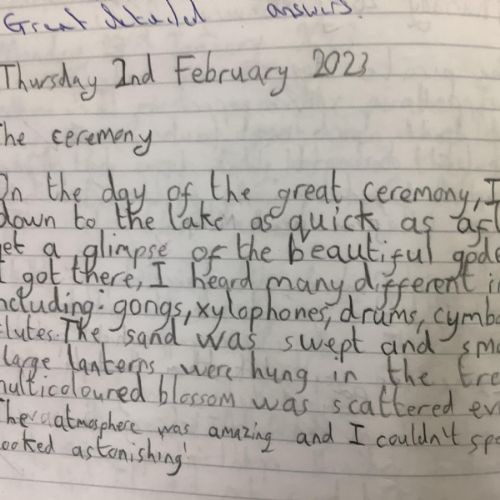 Great detailed answers.
Thursday 2nd February 2023
The ceremony
On the day of the great ceremony, I
down to the lake as quick as a
get a glimpse of the beautiful
I got there, I heard many different
including: gongs, xylophones, drums,
flutes. The sand was swept and
large lanterns were hung in the
multicoloured blossom was scattered
The atmosphere was amazing and I couldn't
looked astonishing!